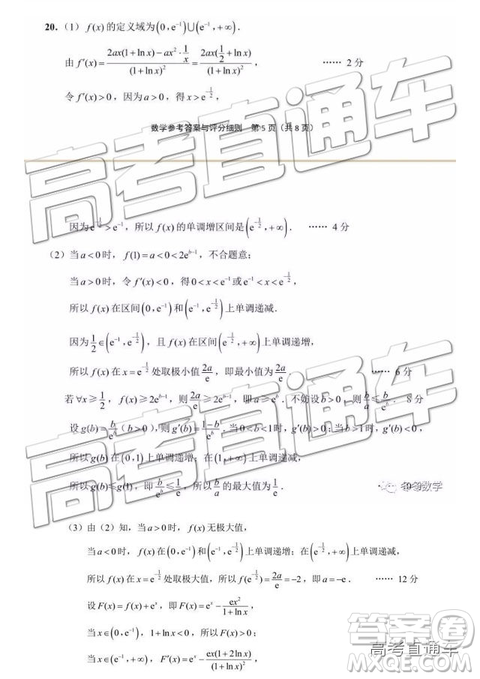 20.(1) f(x)的定义域为(0,e⁻¹)∪(e⁻¹,+∞).
由f′(x)=[2ax(1+ln x)-ax²·(1/x)]/(1+ln x)²=2ax(1/2+ln x)/(1+ln x)², …… 2分
令f′(x)>0,因为a>0,得x>e^(-1/2)
数学参考答案与评分细则 第5页(共8页)
因为e^(-1/2)>e⁻¹,所以f(x)的单调增区间是(e^(-1/2),+∞). …… 4分
(2)当a<0时,f(1)=a<0<2e^(b-1),不合题意;
当a>0时,令f′(x)<0,得0<x<e⁻¹或e⁻¹<x<e^(-1/2),
所以f(x)在区间(0,e⁻¹)和(e⁻¹,e^(-1/2))上单调递减.
因为1/2∈(e⁻¹,e^(-1/2)),且f(x)在(e^(-1/2),+∞)上单调递增,
所以f(x)在x=e^(-1/2)处取极小值2a/e,即最小值为2a/e. 6分
若∀x≥1/2,f(x)≥2e^(b-1),则2a/e≥2e^(b-1),即a≥e^b.不妨设b>0, 8分
设g(b)=b/e^b(b>0),则g′(b)=(1-b)/e^b.当0<b<1时,g′(b)>0;当b>1时,g′(b)<0,
所以g(b)在(0,1)上单调递增;在(1,+∞)上单调递减,
所以g(b)≤g(1),即b/e^b≤1/e,所以b/a的最大值为1/e.
参考数学
(3)由(2)知,当a>0时,f(x)无极大值,
当a<0时,f(x)在(0,e⁻¹)和(e⁻¹,e^(-1/2))上单调递增;在(e^(-1/2),+∞)上单调递减,
所以f(x)在x=e^(-1/2)处取极大值,所以f(e^(-1/2))=2a/e=-2,即a=-e. …… 12分
设F(x)=f(x)+e^x,即F(x)=e^x-ex²/(1+ln x),
当x∈(0,e⁻¹),1+ln x<0,所以F(x)>0;
当x∈(e⁻¹,+∞),F′(x)=e^x-ex(1+2ln x)/(1+ln x)²,
高考直通车
高考直通车
答案圈
高考直通车
MXQE.COM